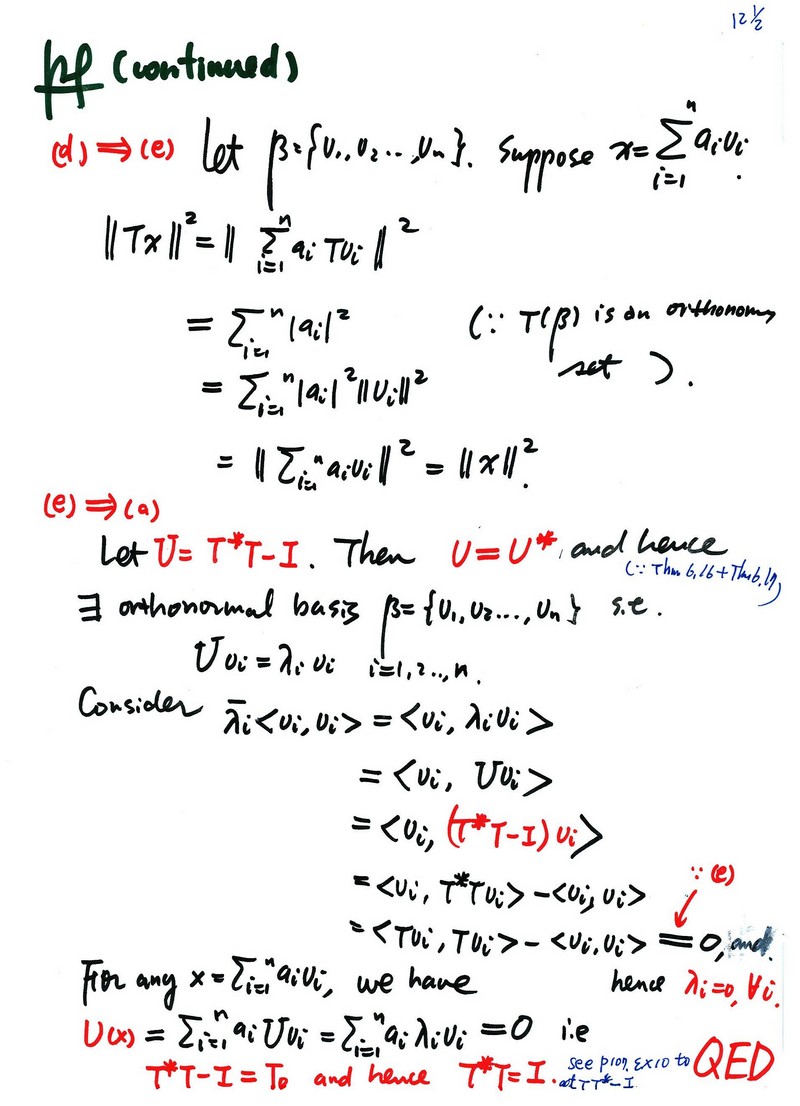 12 1/2
pf (continued)
(d) ⇒ (e) Let β = {v₁, v₂ ..., vₙ}. Suppose x = ∑_{i=1}^{n} aᵢvᵢ.
‖Tx‖² = ‖ ∑_{i=1}^{n} aᵢ Tvᵢ ‖²
= ∑_{i=1}^{n} |aᵢ|² (∵ T(β) is an orthonorm
set ).
= ∑_{i=1}^{n} |aᵢ|² ‖vᵢ‖²
= ‖ ∑_{i=1}^{n} aᵢvᵢ ‖² = ‖x‖².
(e) ⇒ (a)
Let U = T*T-I. Then U = U*, and hence
(∵ Thm 6.16 + Thm 6.17)
∃ orthonormal basis β = {v₁, v₂ ..., vₙ} s.t.
Uvᵢ = λᵢ vᵢ i=1,2..,n.
Consider λ̄ᵢ<vᵢ, vᵢ> = <vᵢ, λᵢvᵢ>
= <vᵢ, Uvᵢ>
= <vᵢ, (T*T-I)vᵢ>
= <vᵢ, T*Tvᵢ> - <vᵢ, vᵢ>
∵ (e)
= <Tvᵢ, Tvᵢ> - <vᵢ, vᵢ> = 0, and
hence λᵢ=0, ∀i.
For any x = ∑_{i=1}^{n} aᵢvᵢ, we have
U(x) = ∑_{i=1}^{n} aᵢ Uvᵢ = ∑_{i=1}^{n} aᵢ λᵢvᵢ = 0 i.e
T*T-I = T₀ and hence T*T = I. see p107, Ex10 to
get TT*=I
QED